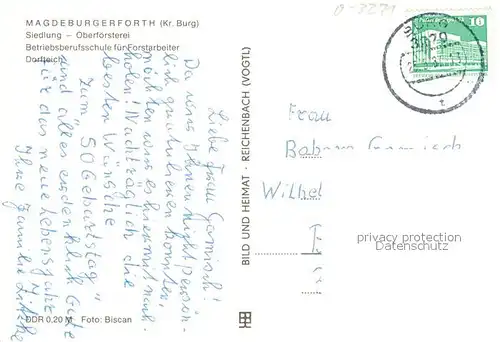 MAGDEBURGERFORTH (Kr. Burg)
Siedlung – Oberförsterei
Betriebsberufsschule für Forstarbeiter
Dorfteich
Liebe Frau Gamisch!
Da wir Ihnen nicht persön-
lich gratulieren konnten,
möchten wir es hiermit nach-
holen! Nachträglich die
besten Wünsche
zum „50 Geburtstag"
und alles erdenklich Gute
für das neue Lebensjahr
Ihre Familie
DDR 0,20 M Foto: Biscan
BILD UND HEIMAT · REICHENBACH (VOGTL)
3270
10
Frau
Wilhel
privacy protection
Datenschutz